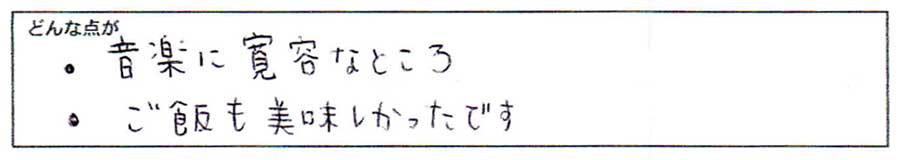 どんな点が
・音楽に寛容なところ
・ご飯も美味しかったです